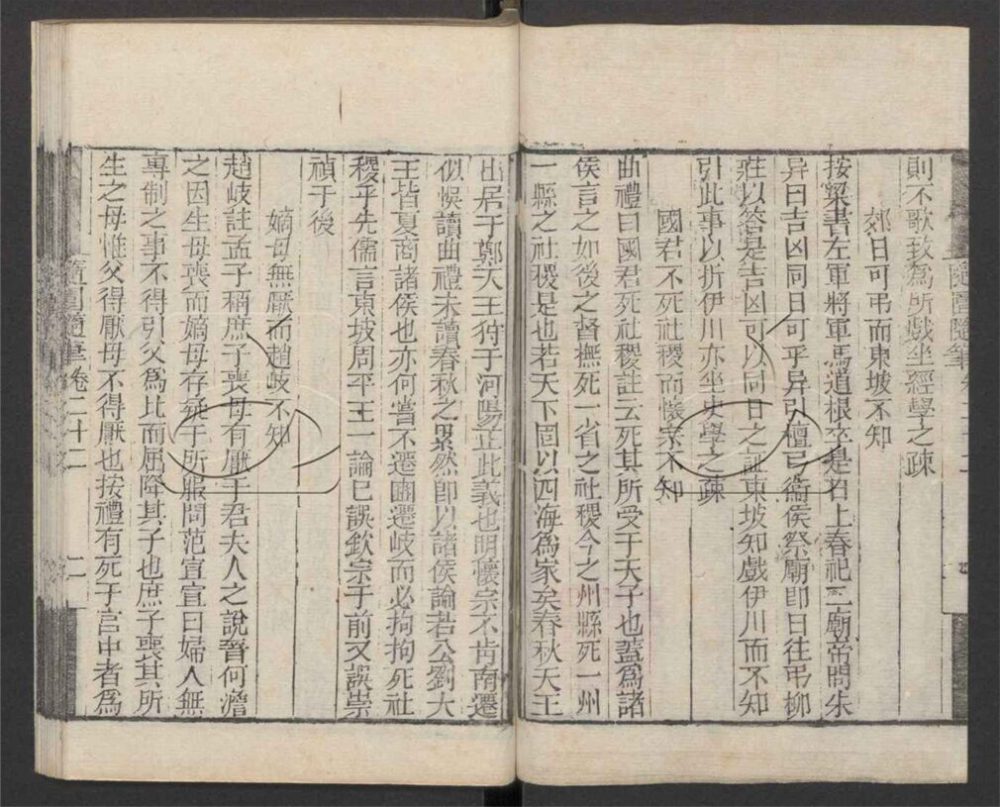 則不歌致為所戲坐經學之疎
郊日可弔而東坡不知
按梁書左軍將軍馬道根卒是右上春祀二廟帝問朱
异曰吉凶同日可乎异引檀弓衞侯祭廟即日往弔柳
莊以答是吉凶可以同日之証東坡知戲伊川而不知
引此事以折伊川亦坐史學之疎
國君不死社稷而懷宗不知
曲禮曰國君死社稷註云死其所受于天子也蓋為諸
侯言之如後之督撫死一省之社稷今之州縣死一州
一縣之社稷是也若天下固以四海為家矣春秋天王
出居于鄭天王狩于河陽正此義也明懷宗不肯南遷
似悞讀曲禮未讀春秋之累然即以諸侯論若公劉大
王皆夏商諸侯也亦何嘗不遷豳遷岐而必拘拘死社
稷乎先儒言東坡周平王一論已誤欽宗于前又誤崇
禎于後
嫡母無厭而趙岐不知
趙岐註孟子稱庶子喪母有厭于君夫人之說晉何澹
之因生母喪而嫡母存疑于所服問范宣宣曰婦人無
專制之事不得引父為比而屈降其子也庶子喪其所
生之母惟父得厭母不得厭也按禮有死于宮中者為
隨園隨筆 卷二十二
二